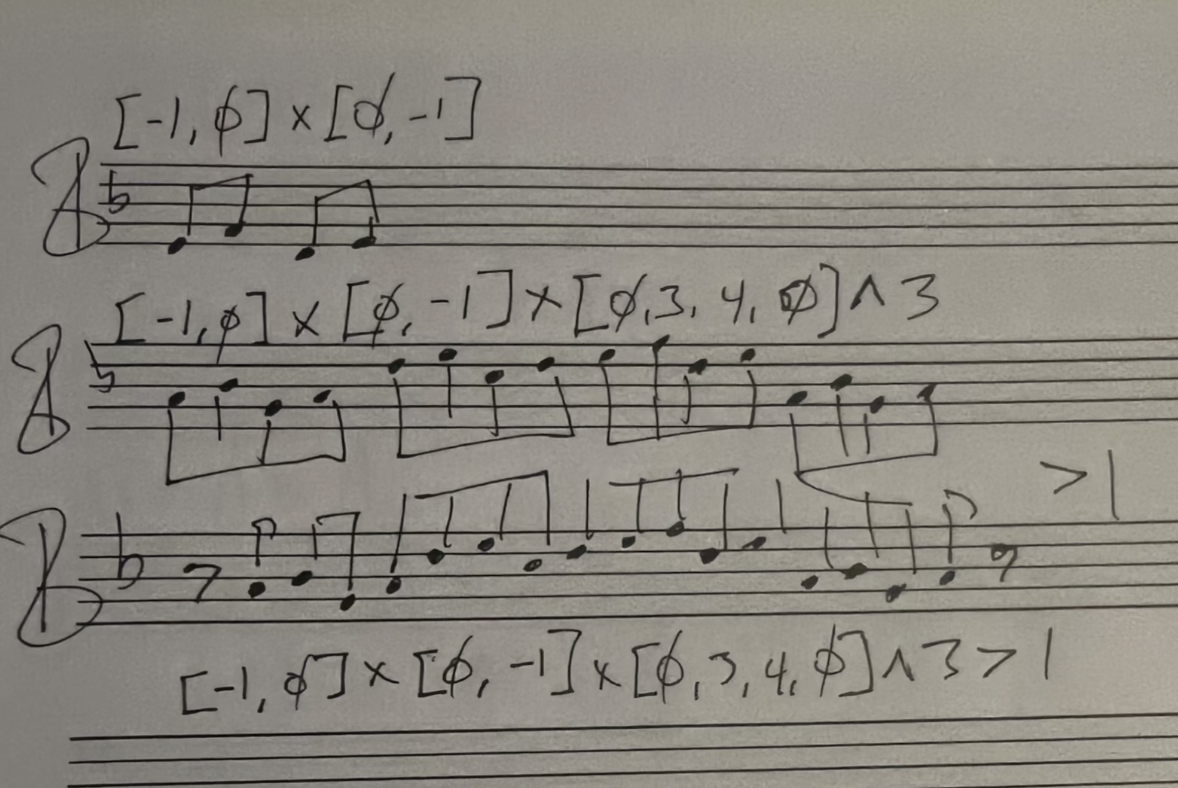 [-1, ∅] × [∅, -1]
[-1, ∅] × [∅, -1] × [∅, 3, 4, ∅] ∧ 3
> 1
[-1, ∅] × [∅, -1] × [∅, 3, 4, ∅] ∧ 3 > 1